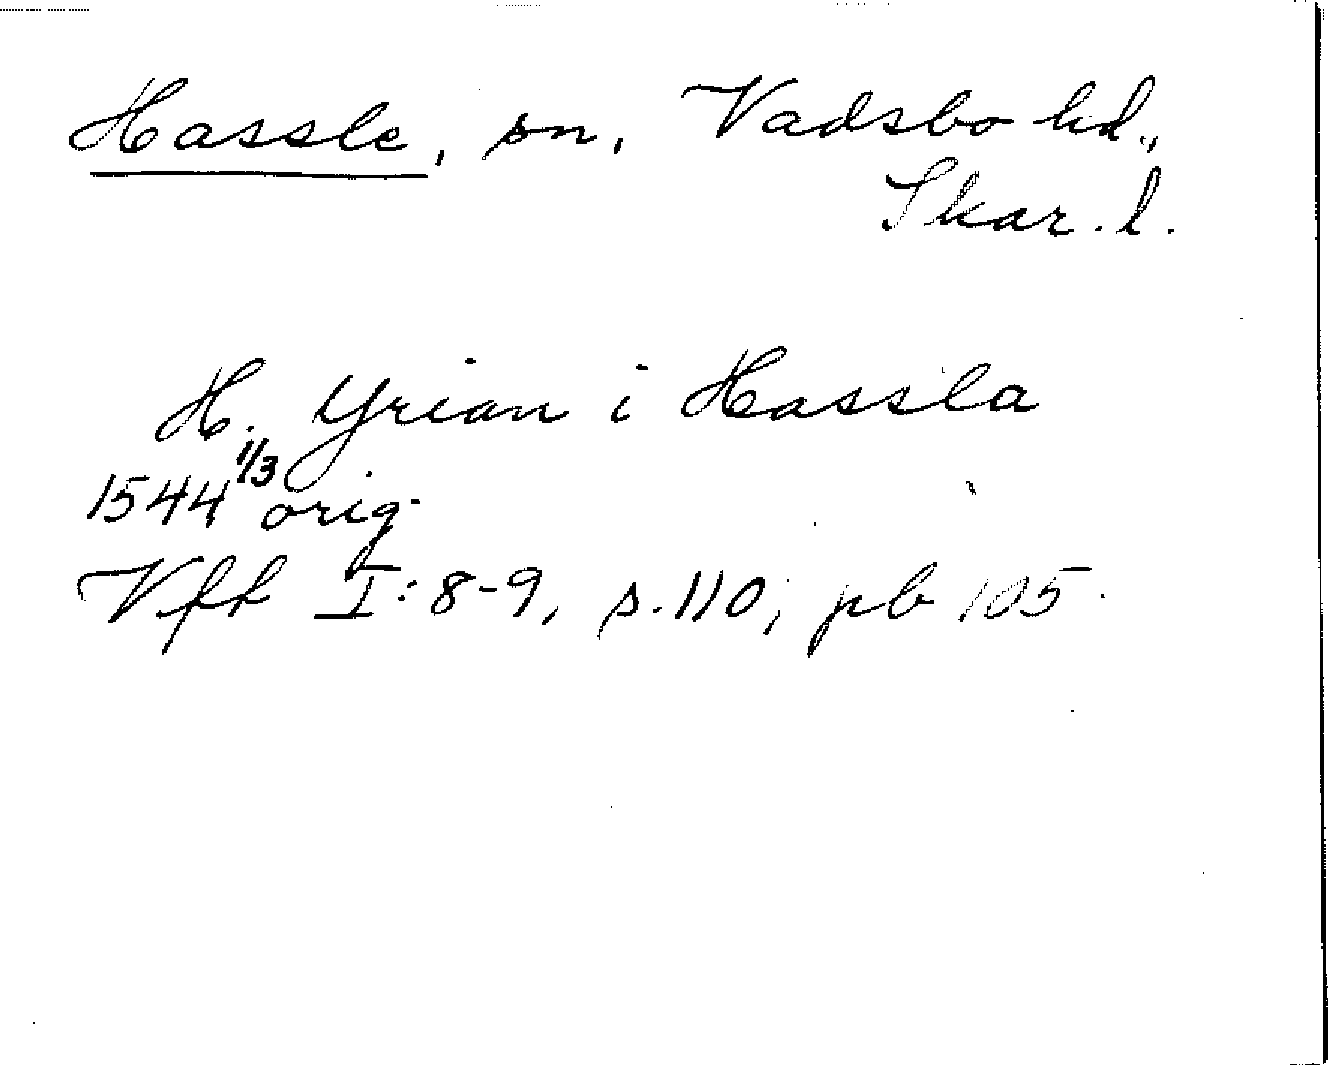 Hassle, sn, Vadsbo hd.,
Skar. l.
H. Yrian i Hassla
1544 1/3 orig.
Vfh I: 8-9, s. 110, pb 105.